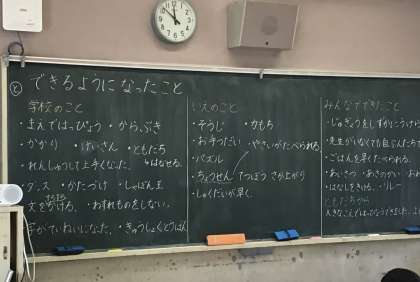 と できるようになったこと
学校のこと
・まえではっぴょう ・からぶき
・かかり ・けいさん ・ともだち
・れんしゅうして上手くなった。 とはなせる。
ダンス ・かたづけ ・しゃぼん玉
文をかける。 ・わすれものをしない。
字がていねいになった。 ・きゅうしょくとうばん
いえのこと
・そうじ ・力もち
・お手つだい ・やさいがたべられる
・パズル
・ちょうせん てつぼう さか上がり
・しゅくだいが早く
みんなでできたこと
・じゅぎょうをしずかに
・先生がいなくても自ぶんたちで
・ごはんを早くたべられる。
・あいさつ
・はなしをきける。 ・リレー
ともだちから